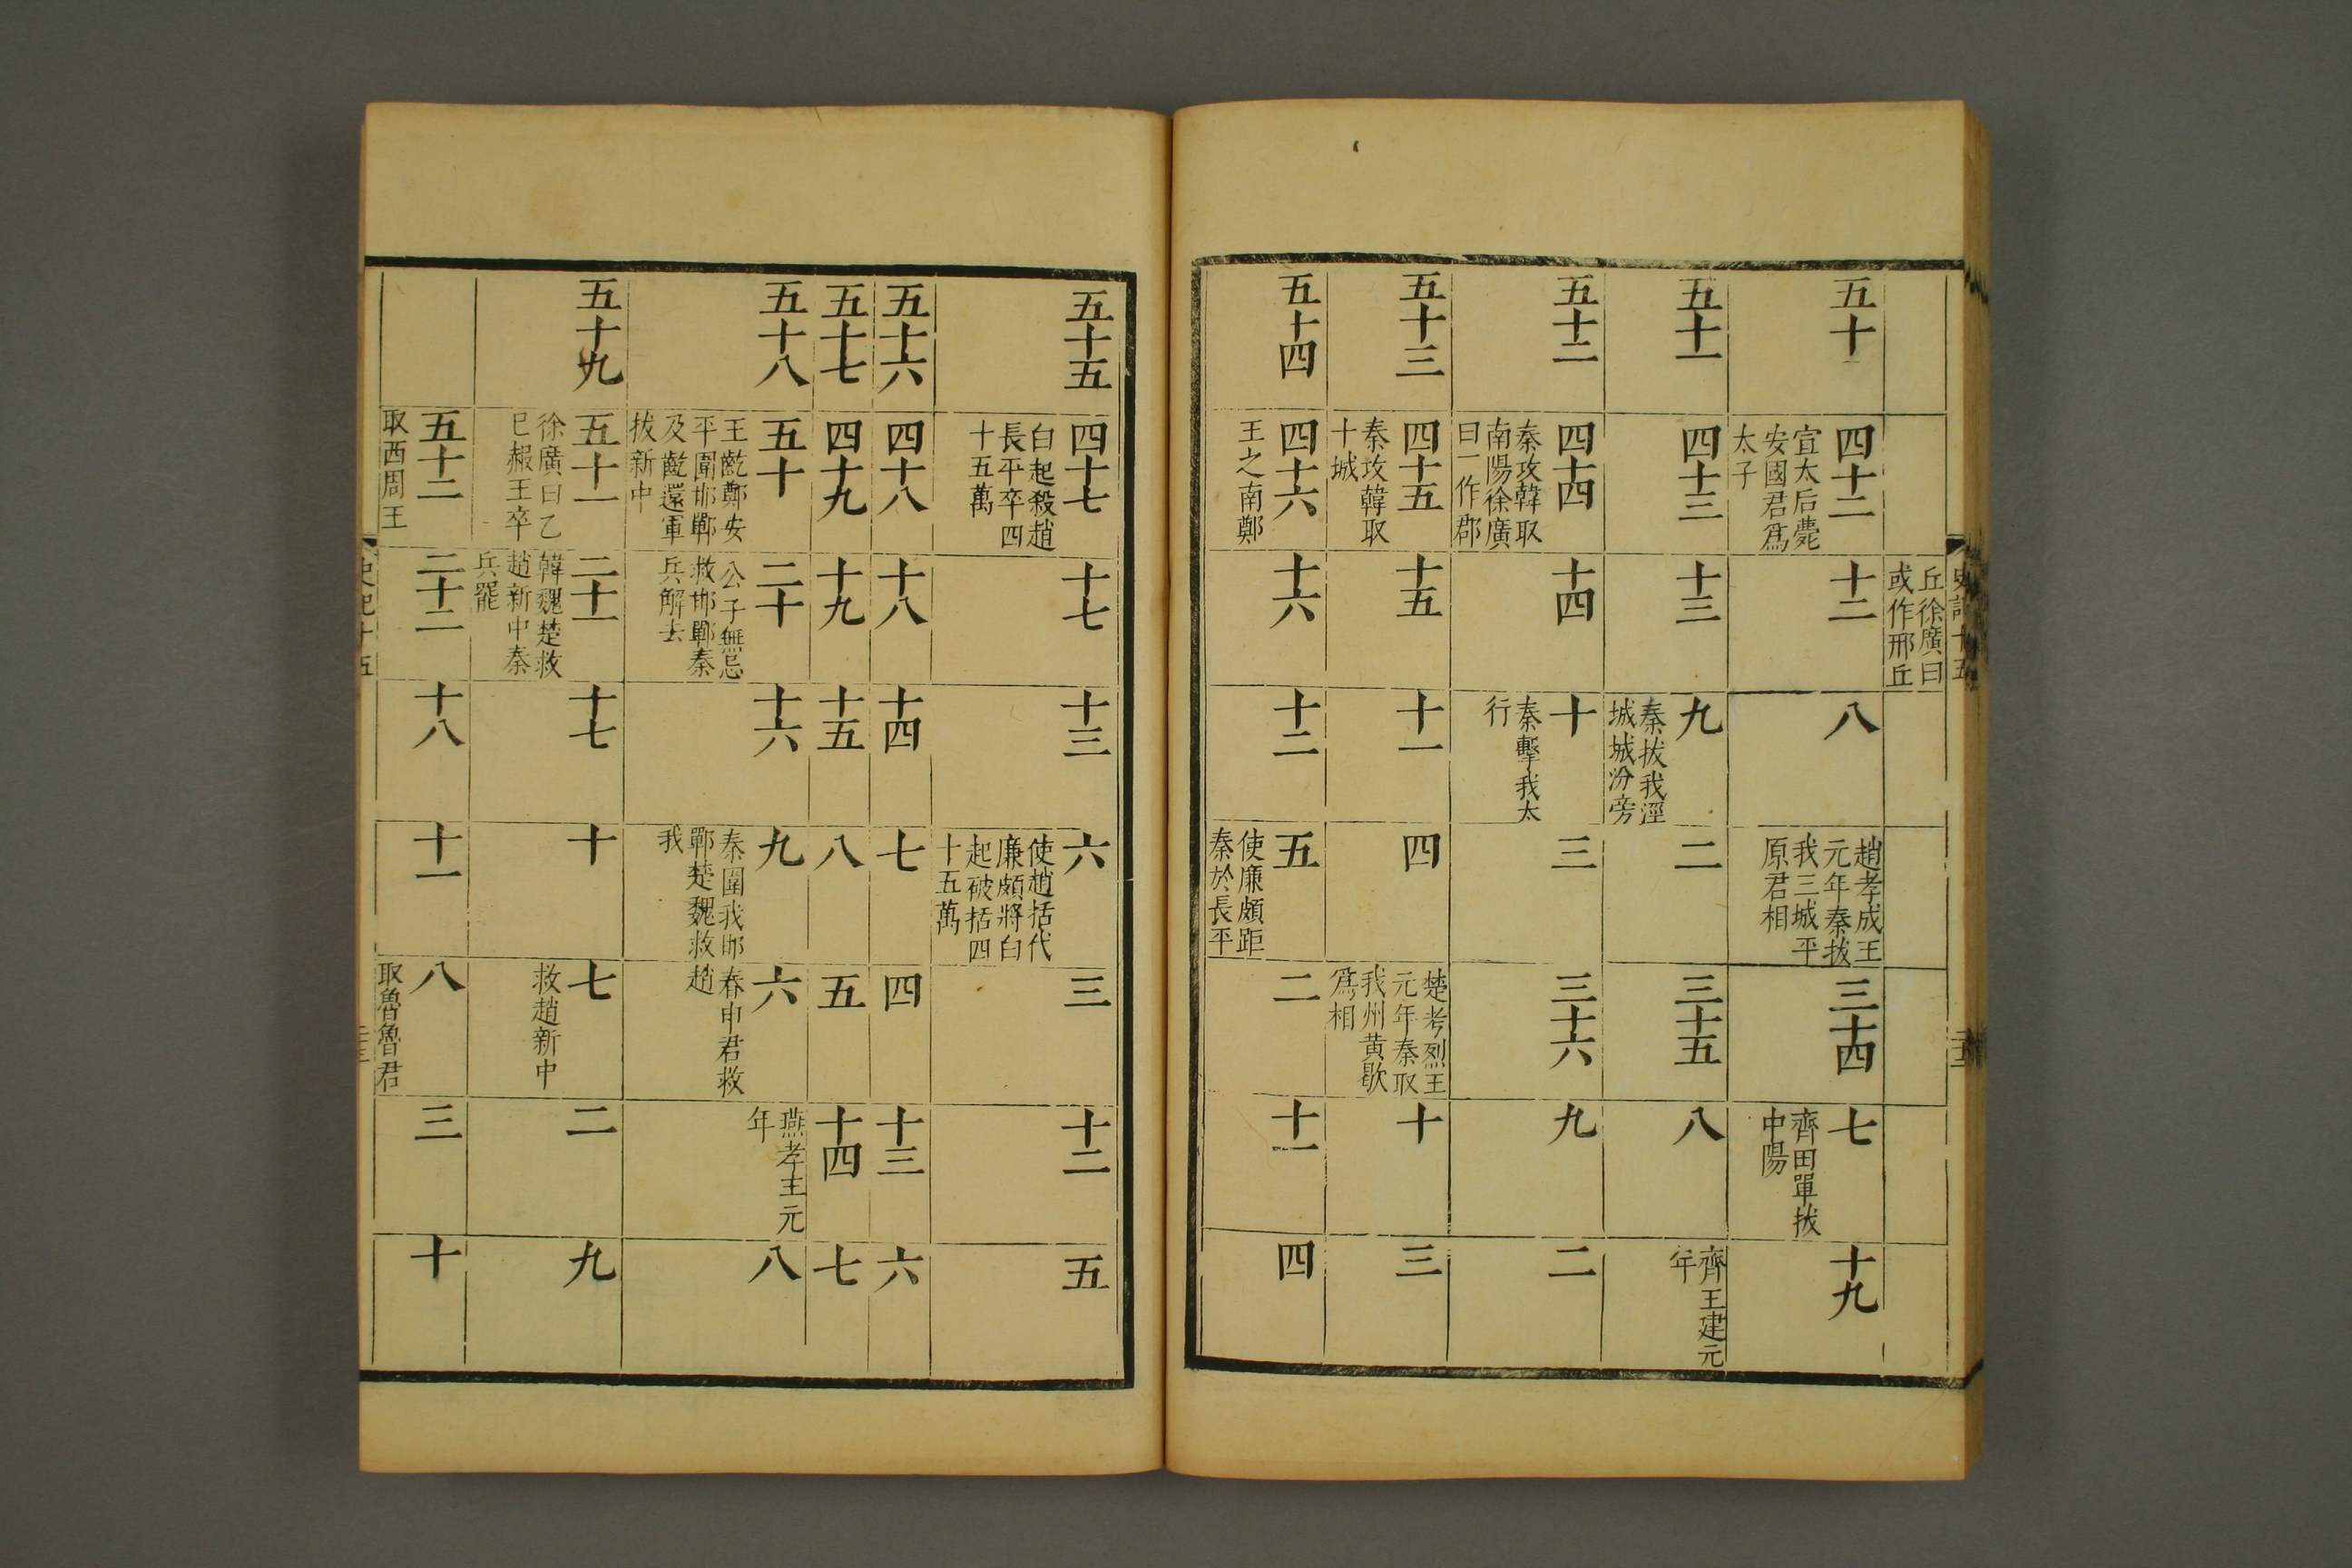 史記十五
丘徐廣曰
或作邢丘
五十
四十二
宣太后薨
安國君爲
太子
十二
八
趙孝成王
元年秦拔
我三城平
原君相
三十四
七
齊田單拔
中陽
十九
五十一
四十三
十三
九
秦拔我涇
城城汾旁
二
三十五
八
齊王建元
年
五十二
四十四
秦攻韓取
南陽徐廣
曰一作郡
十四
十
秦擊我太
行
三
三十六
九
二
五十三
四十五
秦攻韓取
十城
十五
十一
四
楚考烈王
元年秦取
我州黄歇
爲相
十
三
五十四
四十六
王之南鄭
十六
十二
五
使廉頗距
秦於長平
二
十一
四
五十五
四十七
白起殺趙
長平卒四
十五萬
十七
十三
六
使趙括代
廉頗將白
起破括四
十五萬
三
十二
五
五十六
四十八
十八
十四
七
四
十三
六
五十七
四十九
十九
十五
八
五
十四
七
五十八
五十
王齕鄭安
平圍邯鄲
及齕還軍
拔新中
二十
公子無忌
救邯鄲秦
兵解去
十六
九
秦圍我邯
鄲楚魏救
我
六
春申君救
趙
燕孝王元
年
八
五十九
五十一
徐廣曰乙
巳赧王卒
二十一
韓魏楚救
趙新中秦
兵罷
十七
十
七
救趙新中
二
九
五十二
取西周王
二十二
十八
十一
八
取魯魯君
三
十
史記十五